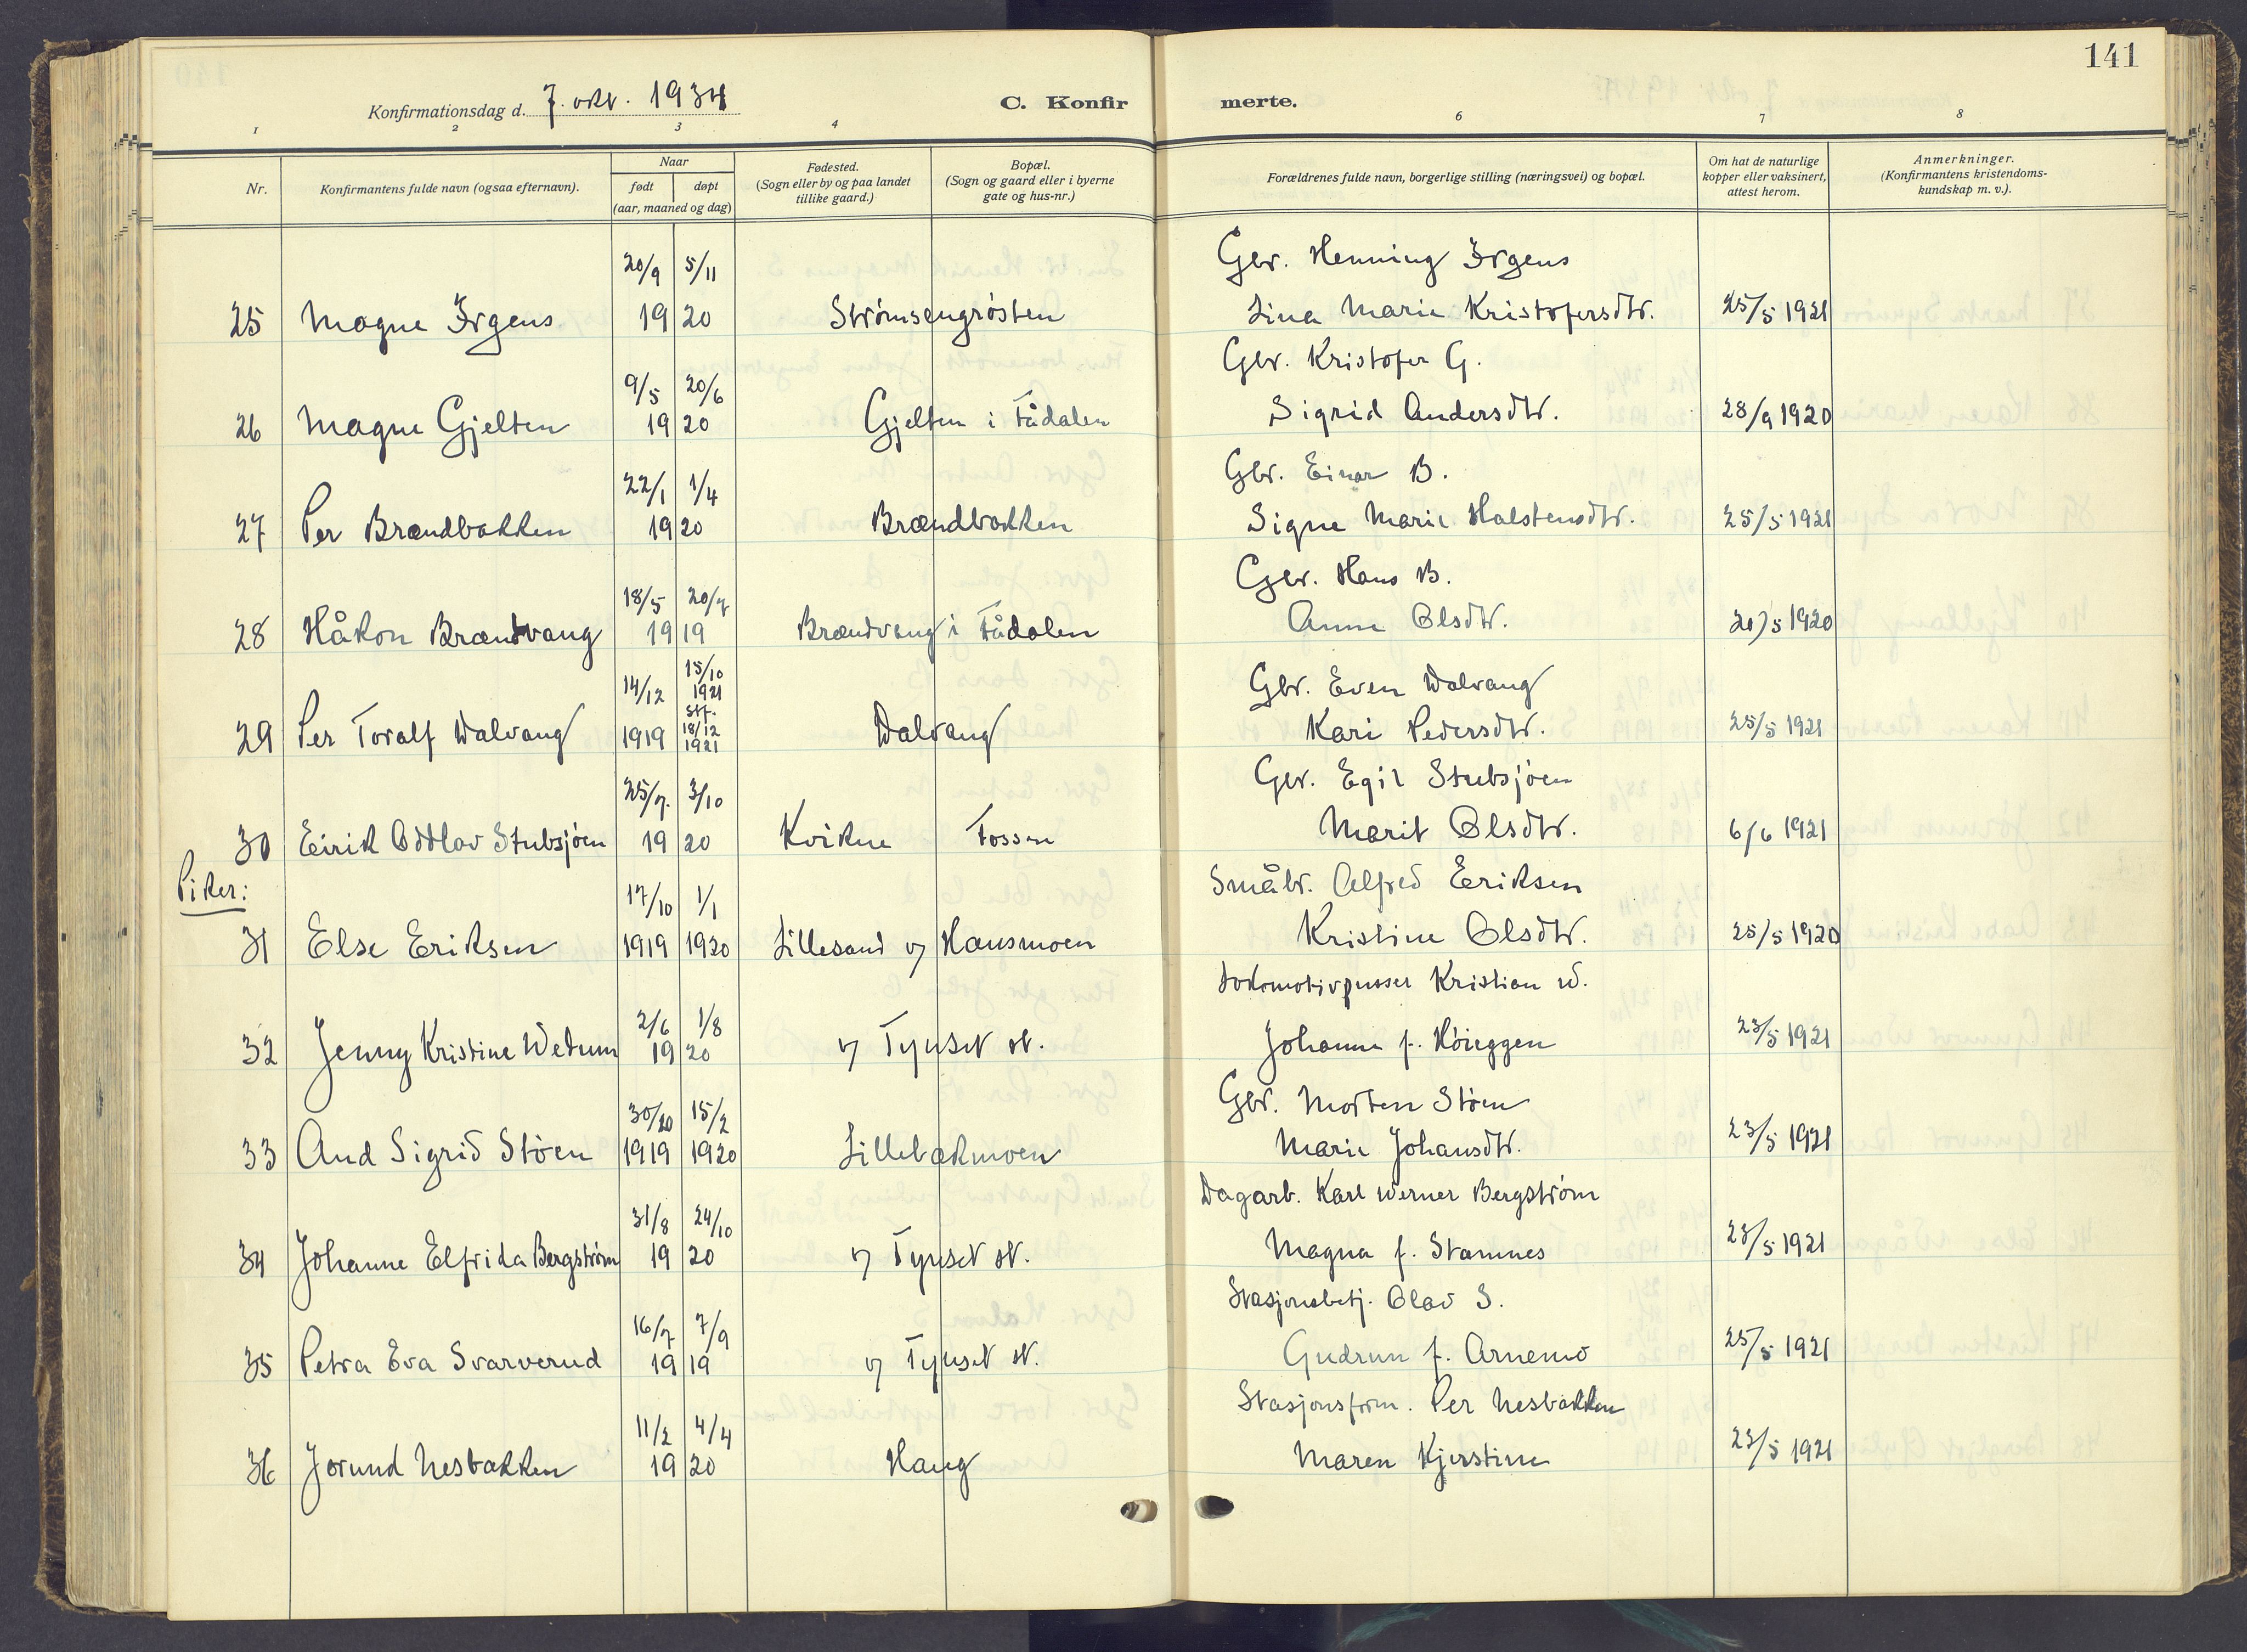 141
Konfirmationsdag d. 7. okt. 1934
C. Konfir merte.
1 2 3 4 6 7 8
Nr.
Konfirmantens fulde navn (ogsaa efternavn).
Naar
født døpt
(aar, maaned og dag)
Fødested.
(Sogn eller by og paa landet
tillike gaard.)
Bopæl.
(Sogn og gaard eller i byerne
gate og hus-nr.)
Forældrenes fulde navn, borgerlige stilling (næringsvei) og bopæl.
Om hat de naturlige
kopper eller vaksinert,
attest herom.
Anmerkninger.
(Konfirmantens kristendoms-
kundskap m. v.).
20/9 5/11 Gbr. Henning Irgens
25 Magne Irgens 19 20 Strømsengrøsten Lina Marie Kristofersdtr. 25/5 1921
9/5 20/6 Gbr. Kristofer G.
26 Magne Gjelten 19 20 Gjelten i Fådalen Sigrid Andersdtr. 28/9 1920
22/1 1/4 Gbr. Einar B.
27 Per Brændbakken 19 20 Brændbakken Signe Marie Halstensdtr. 25/5 1921
18/5 20/7 Gbr. Hans B.
28 Håkon Brændvang 19 19 Brændvang i Fådalen Anne Olsdtr. 20/5 1920
14/12 15/10 1921 Gbr. Even Dalvang
29 Per Toralf Dalvang 1919 stf. 18/12 1921 Dalvang Kari Pedersdtr. 25/5 1921
25/7. 3/10 Gbr. Egil Stubsjøen
30 Eirik Oddlav Stubsjøen 19 20 Kvikne Fossen Marit Olsdtr. 6/6 1921
Piker:
17/10 1/1 Småbr. Alfred Eriksen
31 Else Eriksen 1919 1920 Lillesand og Hausmoen Kristine Olsdtr. 25/5 1920
2/6 1/8 Lokomotivpusser Kristian W.
32 Jenny Kristine Wedum 19 20 og Tynset st. Johanne f. Høieggen 23/5 1921
30/10 15/2 Gbr. Morten Støen
33 Aud Sigrid Støen 1919 1920 Lillebækmoen Marie Johansdtr. 23/5 1921
31/8 24/10 Dagarb. Karl Werner Bergstrøm
34 Johanne Elfrida Bergstrøm 19 20 og Tynset st. Magna f. Stamnes 23/5 1921
16/7 7/9 Stasjonsbetj. Olav S.
35 Petra Eva Svarverud 19 19 og Tynset st. Gudrun f. Arnemo 25/5 1921
11/2 4/4 Stasjonsform. Per Nesbakken
36 Jorund Nesbakken 19 20 Haug Maren Kjerstine 23/5 1921